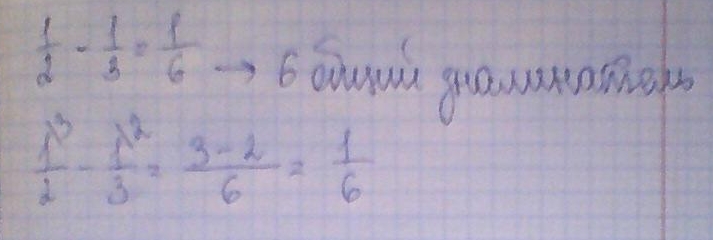 1/2 - 1/3 = 1/6 → 6 общий знаменатель
1/2^3 - 1/3^2 = 3-2/6 = 1/6